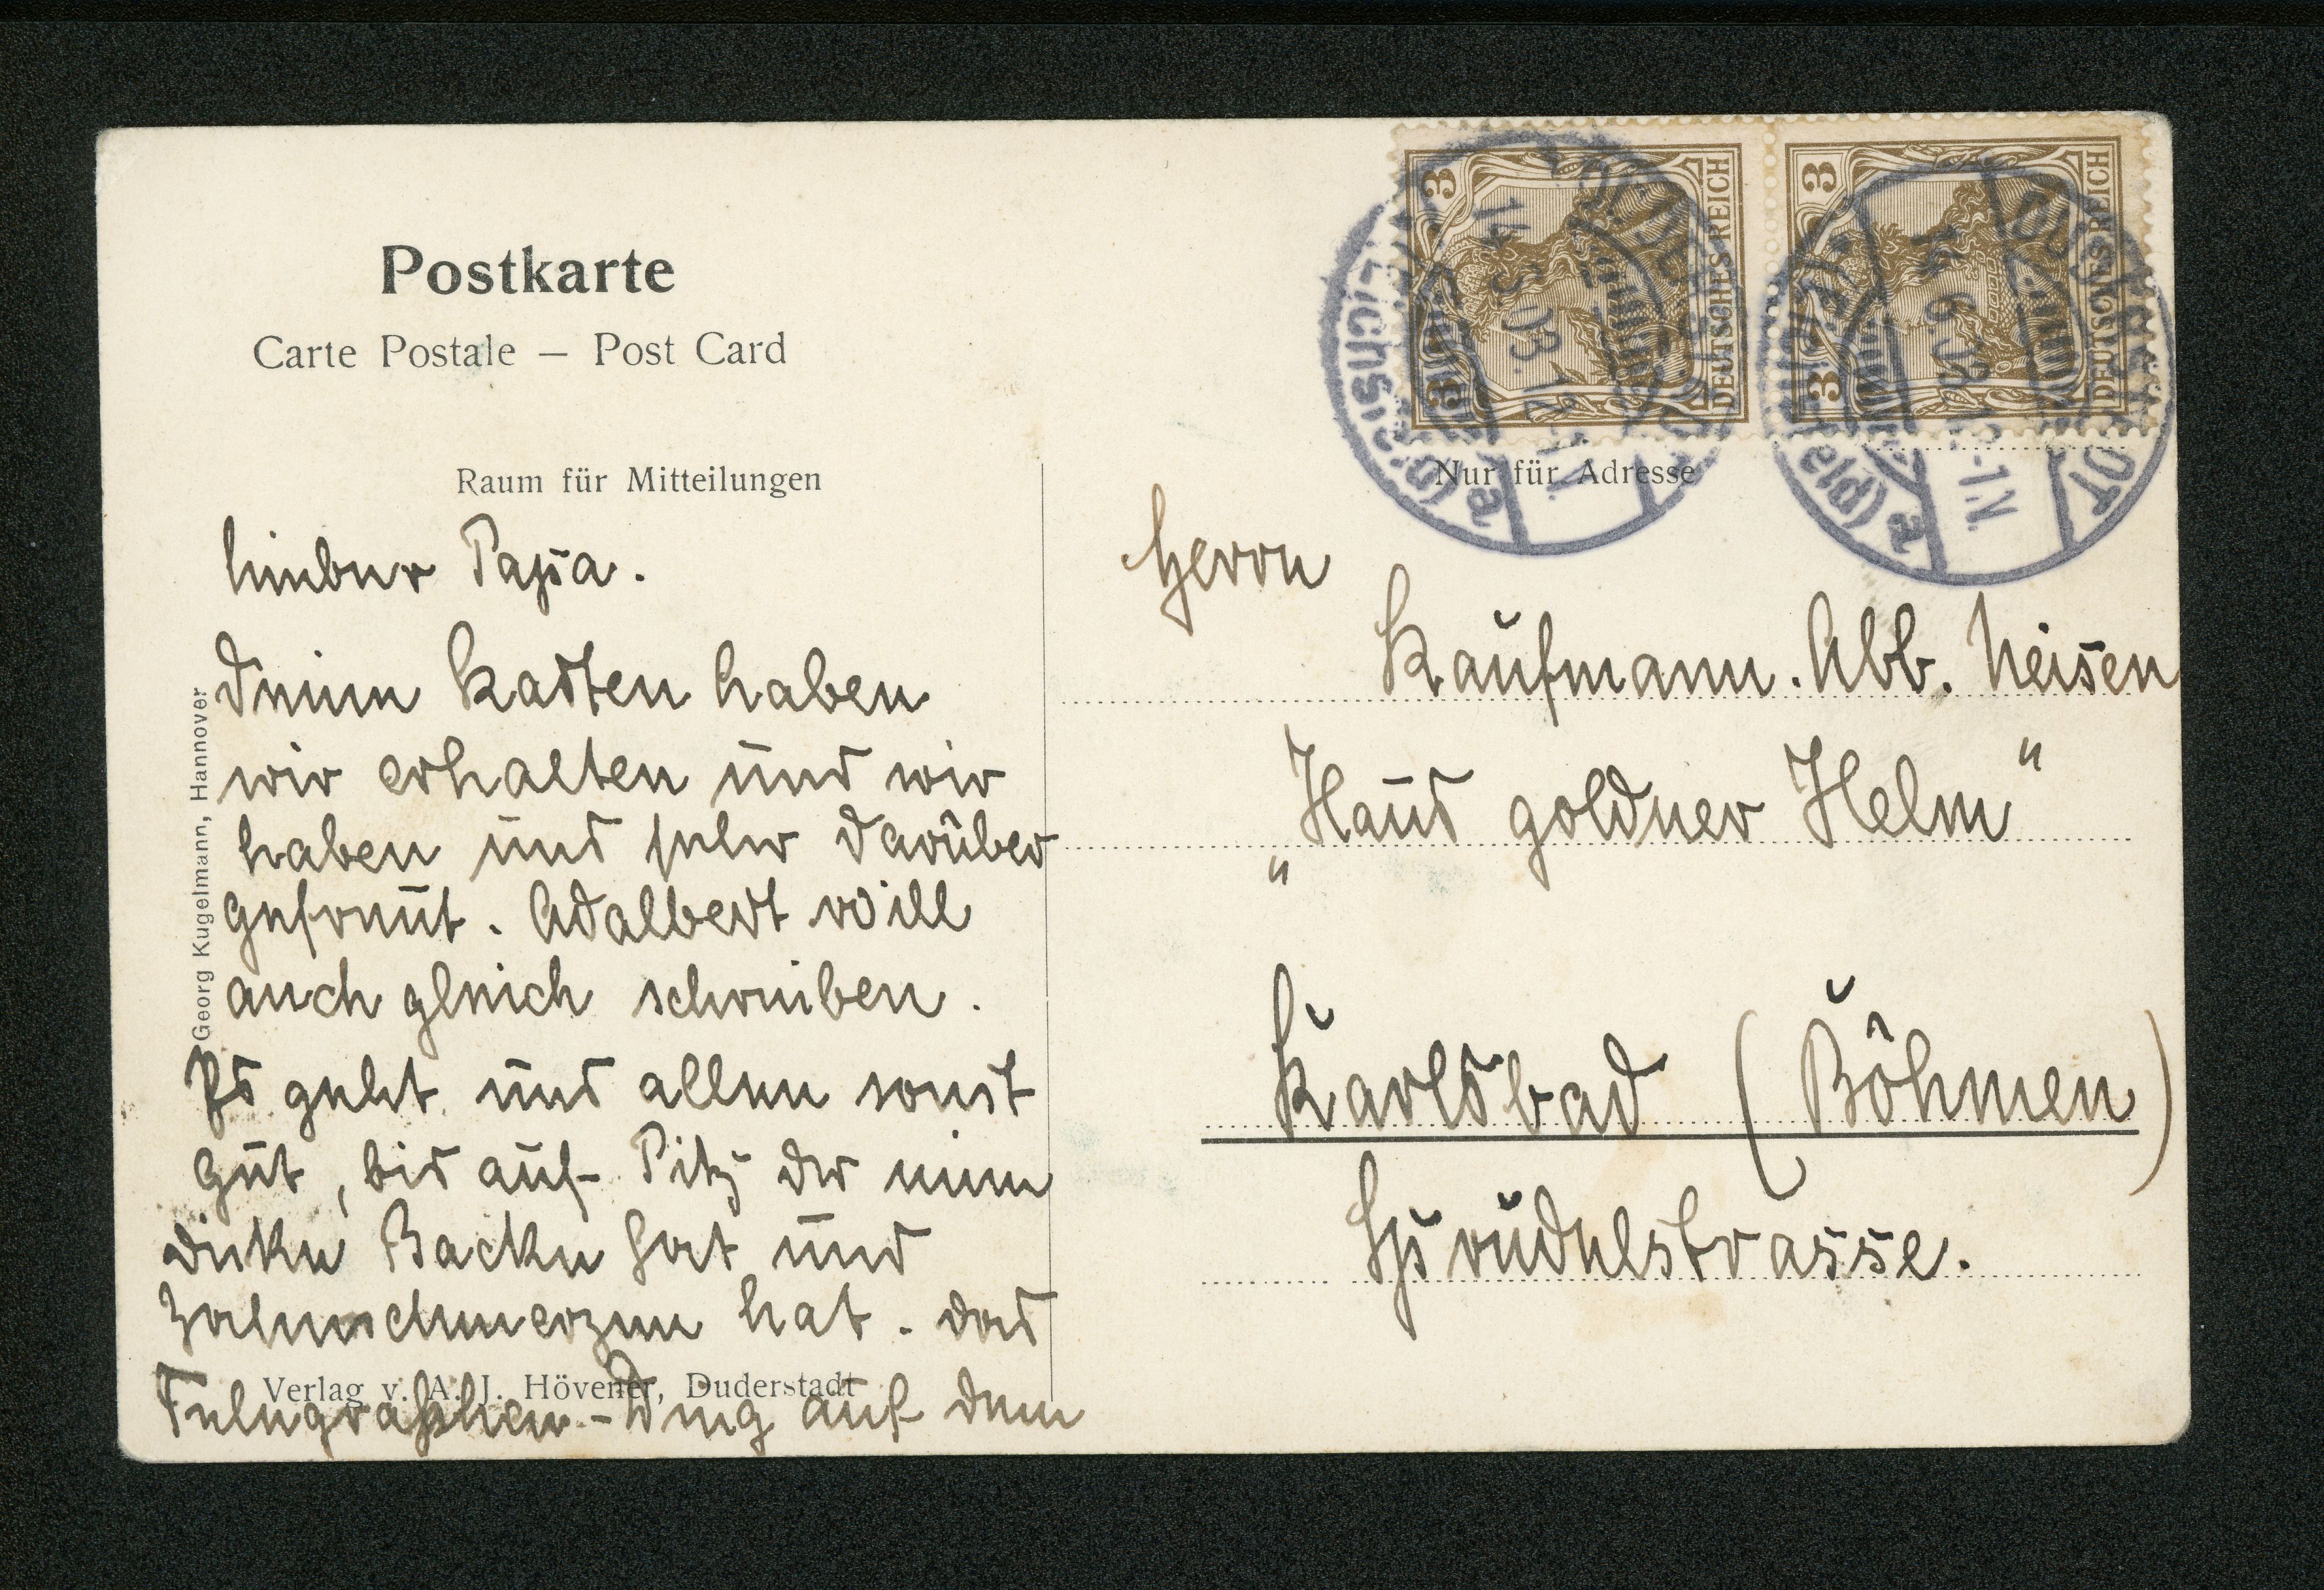 Postkarte
Carte Postale — Post Card
Raum für Mitteilungen
Lieber Papa.
Deinen Kasten haben
wir erhalten und wir
haben uns sehr darüber
gefreut. Adalbert will
auch gleich schreiben.
Es geht uns allen sonst
gut, bis auf Pitz der eine
dicke Backe hat und
Zahnschmerzen hat. Das
Telegraphen-Ding auf dem
Georg Kugelmann, Hannover
Verlag v. A. J. Hövener, Duderstadt
DEUTSCHES REICH
3 3
DEUTSCHES REICH
3 3
(Eichsfeld)
a
14 6 03. 12-1N.
(Eichsfeld)
a
14 6 03. 12-1N.
Nur für Adresse
Herrn
Kaufmann. Abb. Neisen
„Haus goldner Helm"
Karlsbad (Böhmen)
Sprudelstrasse.